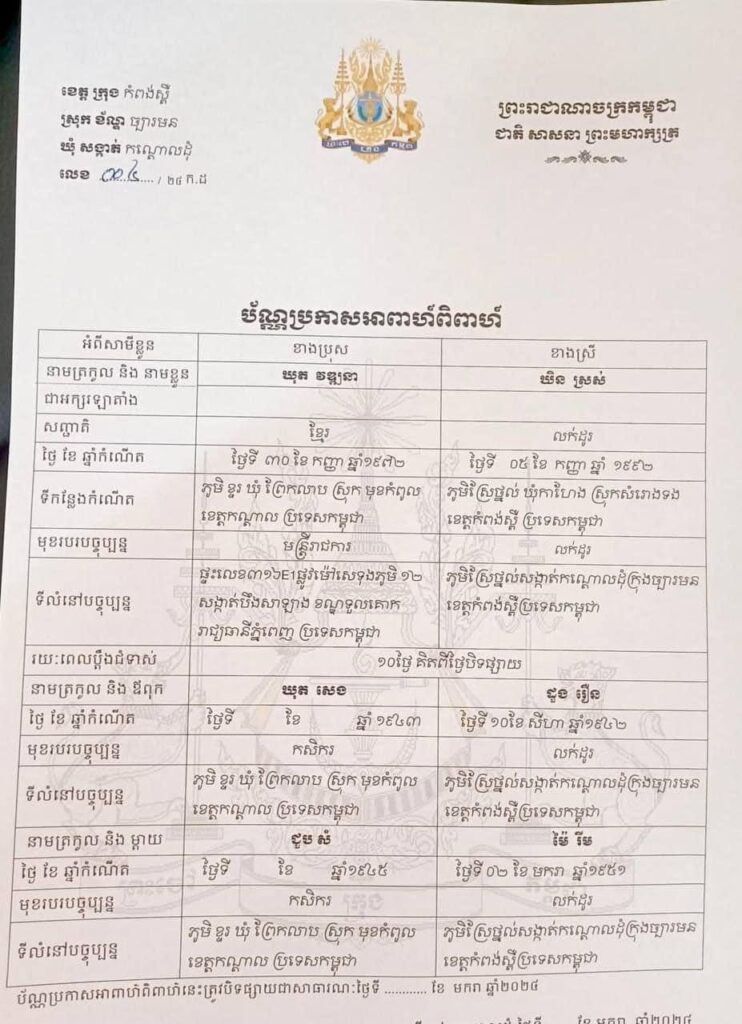 ខេត្ត ក្រុង កំពង់ស្ពឺ
ស្រុក ខ័ណ្ឌ ច្បារមន
ឃុំ សង្កាត់ កណ្តោលដុំ
លេខ ............ / ២៤ ក.ដ
ព្រះរាជាណាចក្រកម្ពុជា
ជាតិ សាសនា ព្រះមហាក្សត្រ
ប័ណ្ណប្រកាសអាពាហ៍ពិពាហ៍
អំពីសាមីខ្លួន ខាងប្រុស ខាងស្រី
នាមត្រកូល និង នាមខ្លួន ឃុត វឌ្ឍនា ឃិន ស្រស់
ជាអក្សរឡាតាំង
សញ្ជាតិ ខ្មែរ លក់ដូរ
ថ្ងៃ ខែ ឆ្នាំកំណើត ថ្ងៃទី ៣០ ខែ កញ្ញា ឆ្នាំ១៩៧២ ថ្ងៃទី ០៥ ខែ កញ្ញា ឆ្នាំ ១៩៩២
ទីកន្លែងកំណើត ភូមិ ខ្ទរ ឃុំ ព្រែកលាប ស្រុក មុខកំពូល ខេត្តកណ្តាល ប្រទេសកម្ពុជា ភូមិស្រែថ្នល់ ឃុំកាហែង ស្រុកសំរោងទង ខេត្តកំពង់ស្ពឺ ប្រទេសកម្ពុជា
មុខរបរបច្ចុប្បន្ន មន្ត្រីរាជការ លក់ដូរ
ទីលំនៅបច្ចុប្បន្ន ផ្ទះលេខ៣១៦E1ផ្លូវម៉ៅសេទុងភូមិ ១២ សង្កាត់បឹងសាឡាង ខណ្ឌទួលគោក រាជ្យធានីភ្នំពេញ ប្រទេសកម្ពុជា ភូមិស្រែថ្នល់សង្កាត់កណ្តោលដុំក្រុងច្បារមន ខេត្តកំពង់ស្ពឺប្រទេសកម្ពុជា
រយៈពេលប្តឹងជំទាស់ ១០ថ្ងៃ គិតពីថ្ងៃបិទផ្សាយ
នាមត្រកូល និង ឪពុក ឃុត សេង ដួង រឿន
ថ្ងៃ ខែ ឆ្នាំកំណើត ថ្ងៃទី ខែ ឆ្នាំ ១៩៤៣ ថ្ងៃទី ១០ខែ សីហា ឆ្នាំ១៩៤២
មុខរបរបច្ចុប្បន្ន កសិករ លក់ដូរ
ទីលំនៅបច្ចុប្បន្ន ភូមិ ខ្ទរ ឃុំ ព្រែកលាប ស្រុក មុខកំពូល ខេត្តកណ្តាល ប្រទេសកម្ពុជា ភូមិស្រែថ្នល់សង្កាត់កណ្តោលដុំក្រុងច្បារមន ខេត្តកំពង់ស្ពឺប្រទេសកម្ពុជា
នាមត្រកូល និង ម្តាយ ជួប សំ ម៉ៃ រីម
ថ្ងៃ ខែ ឆ្នាំកំណើត ថ្ងៃទី ខែ ឆ្នាំ១៩៤៥ ថ្ងៃទី ០២ ខែ មករា ឆ្នាំ១៩៥១
មុខរបរបច្ចុប្បន្ន កសិករ លក់ដូរ
ទីលំនៅបច្ចុប្បន្ន ភូមិ ខ្ទរ ឃុំ ព្រែកលាប ស្រុក មុខកំពូល ខេត្តកណ្តាល ប្រទេសកម្ពុជា ភូមិស្រែថ្នល់សង្កាត់កណ្តោលដុំក្រុងច្បារមន ខេត្តកំពង់ស្ពឺប្រទេសកម្ពុជា
ប័ណ្ណប្រកាសអាពាហ៍ពិពាហ៍នេះត្រូវបិទផ្សាយជាសាធារណៈថ្ងៃទី ............ ខែ មករា ឆ្នាំ២០២៤